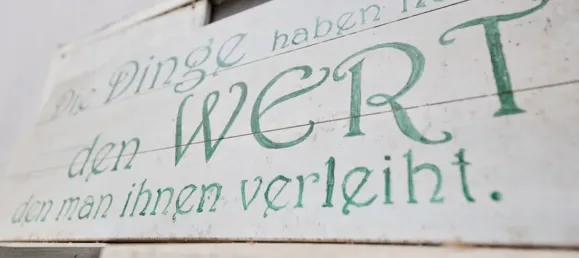 Die Dinge haben
den WERT
den man ihnen verleiht.